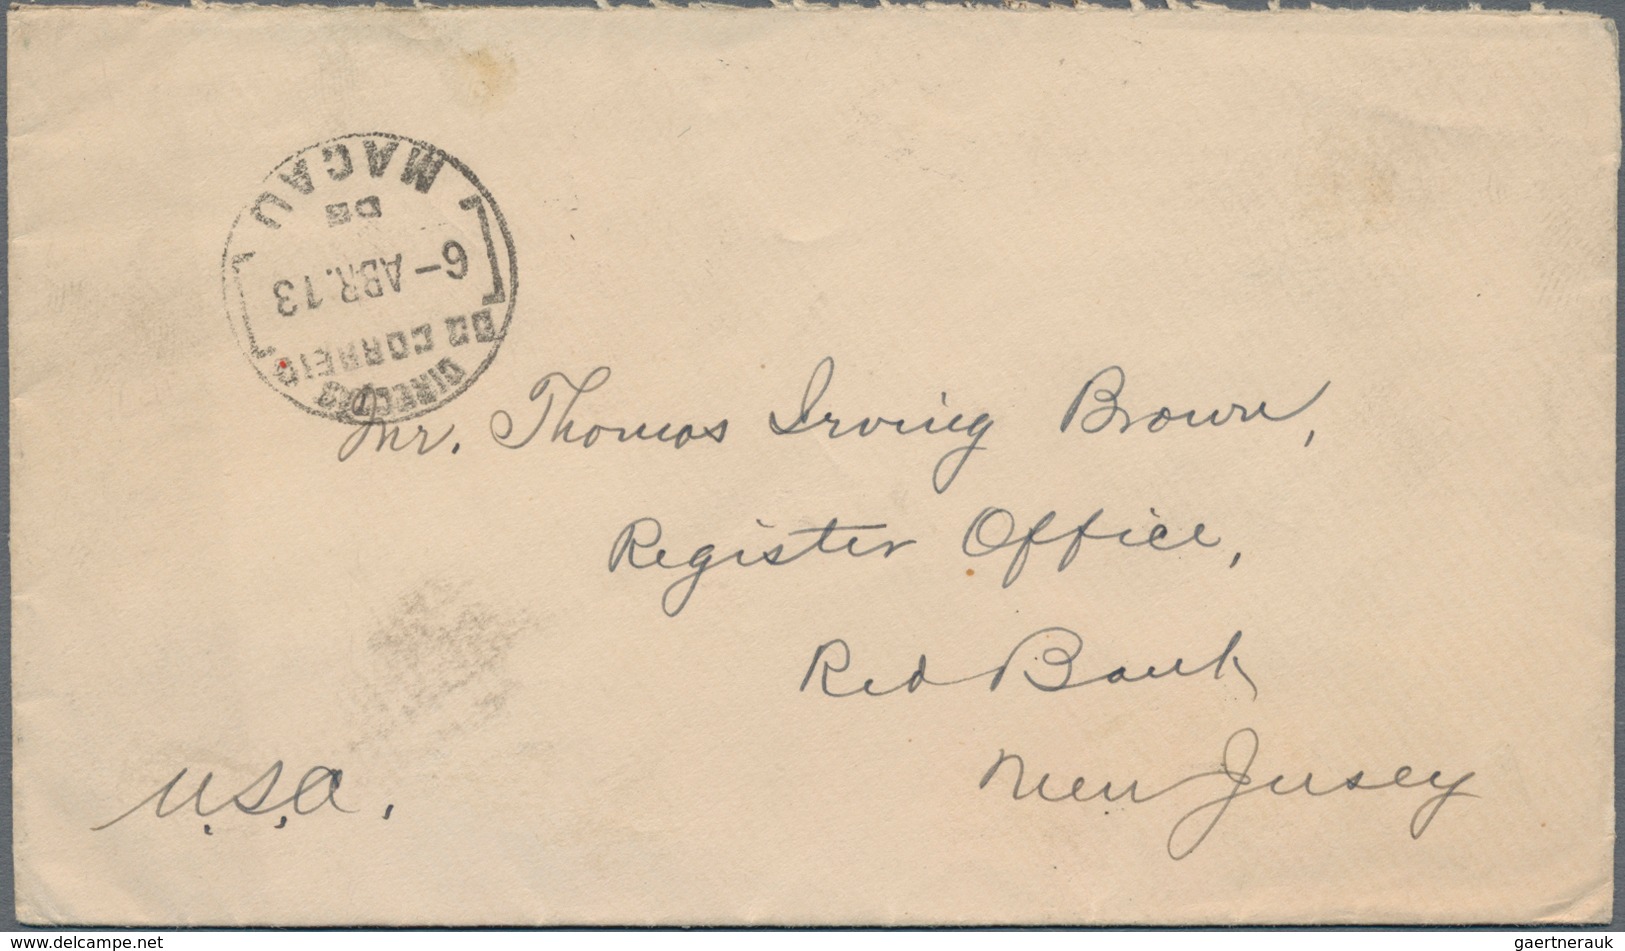 MACAU
DE
6-ABR.13
DO CORREIO
DIRECÇÃO
Mr. Thomas Irving Brown,
Register Office,
Red Bank
New Jersey
U.S.A.
www.delcampe.net
gaertnerauk